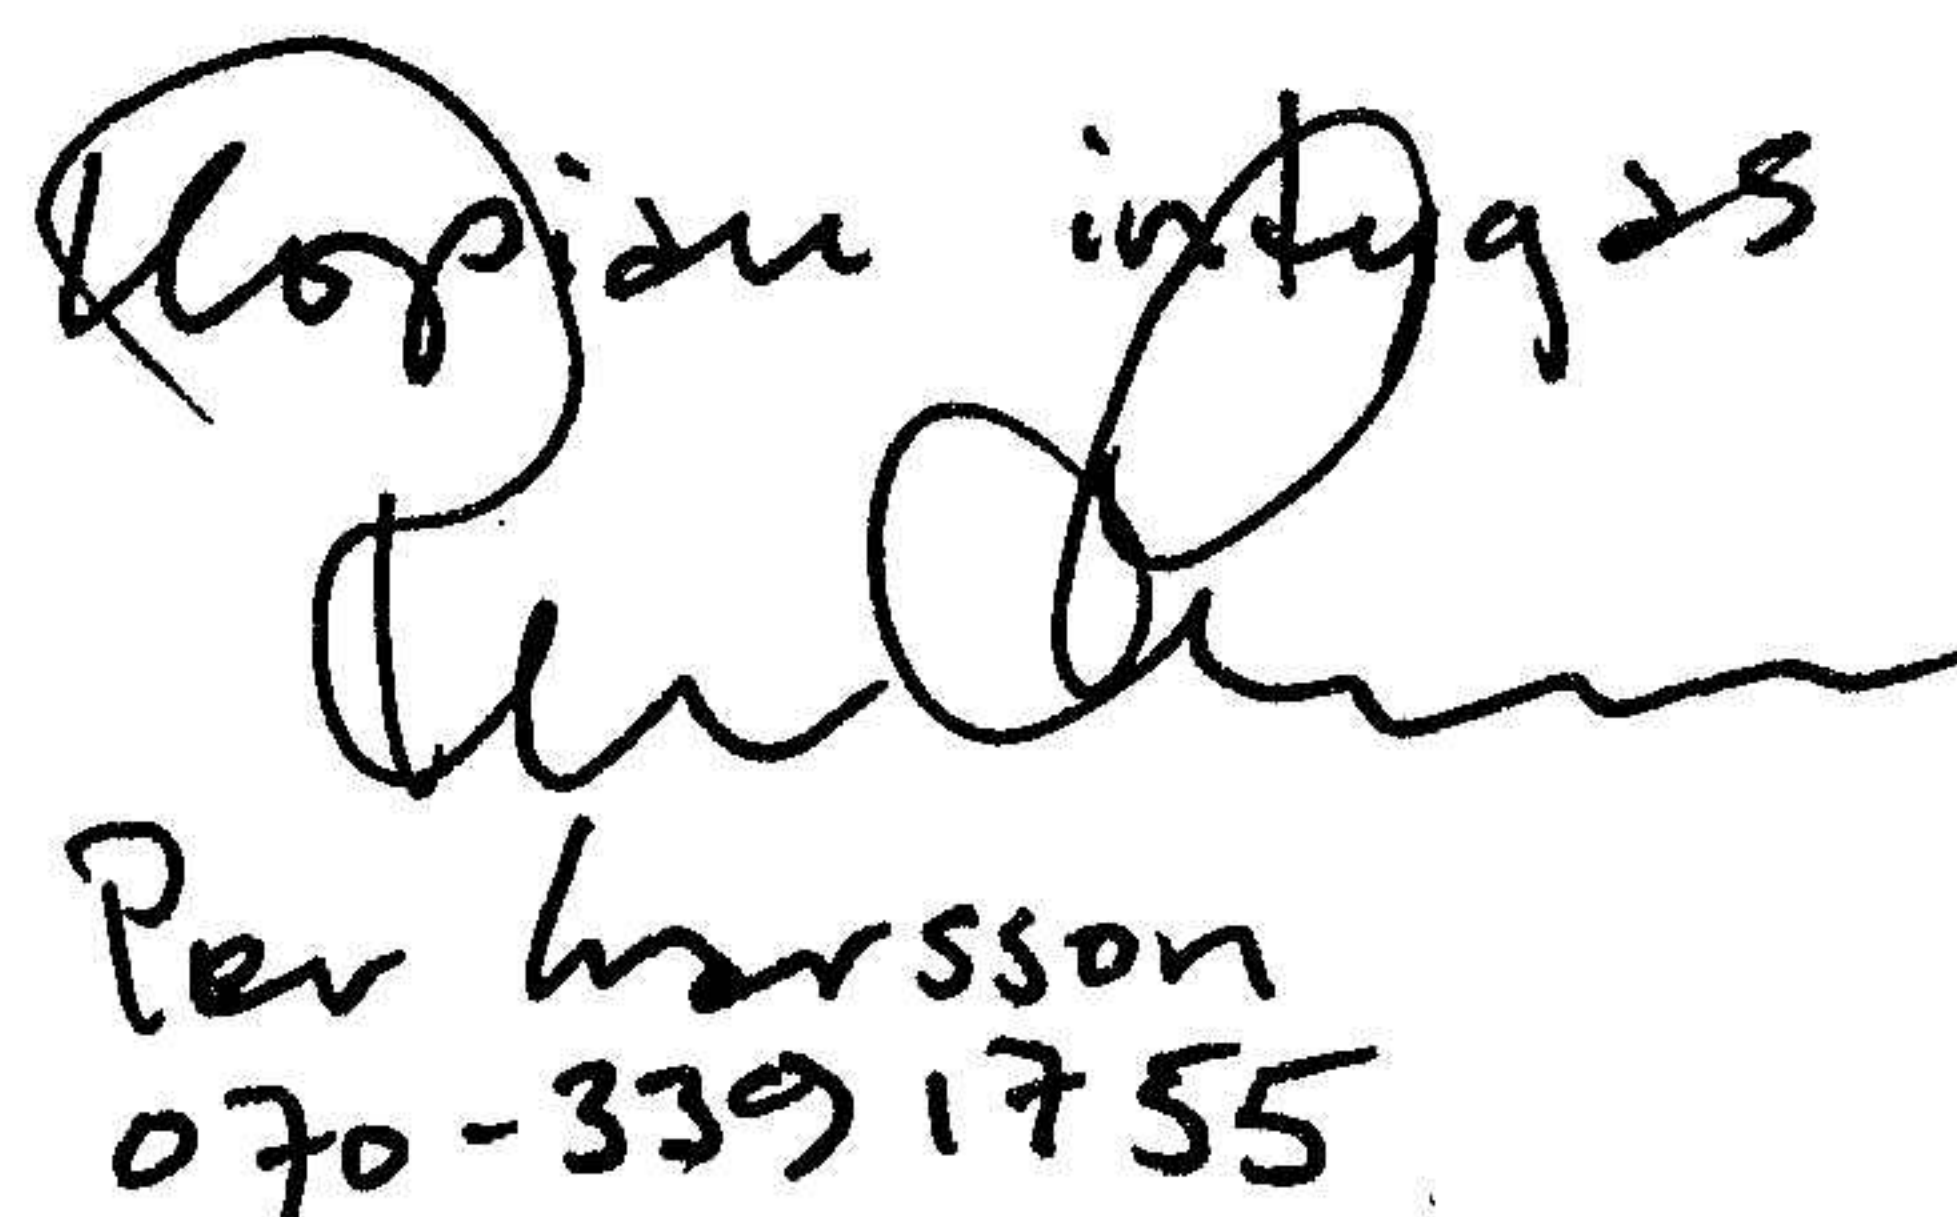 Kopian intygas
Per Larsson
070-339 1755